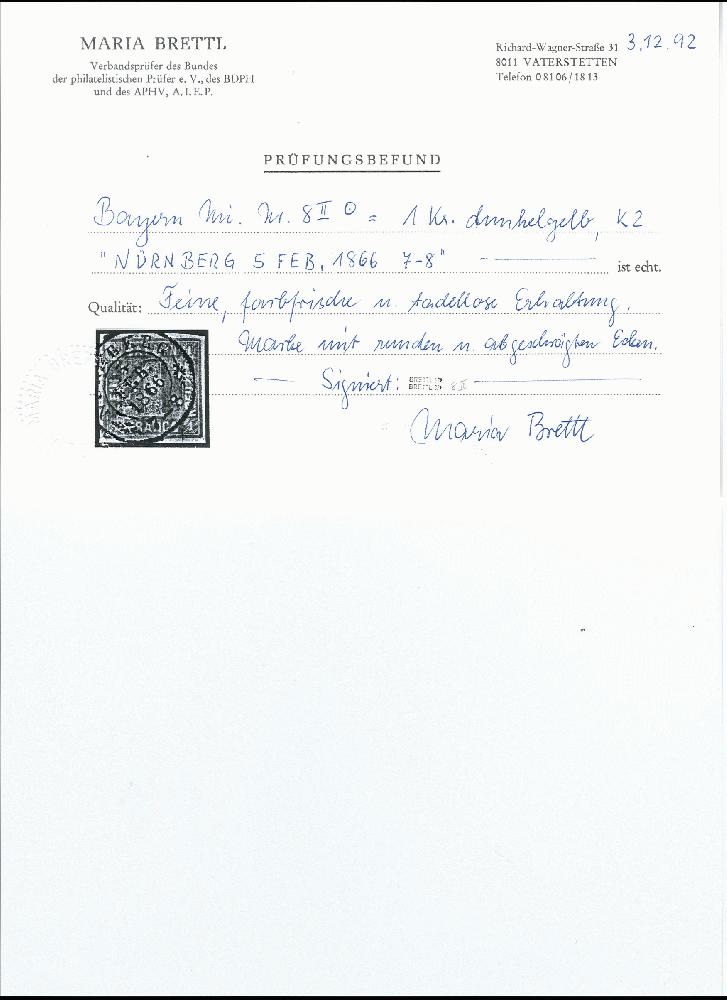 MARIA BRETTL
Verbandsprüfer des Bundes
der philatelistischen Prüfer e. V., des BDPH
und des APHV, A. I. E. P.
Richard-Wagner-Straße 31
8011 VATERSTETTEN
Telefon 0 81 06 / 18 13
3.12.92
PRÜFUNGSBEFUND
Bayern Mi. Nr. 8 II ⊙ = 1 Kr. dunkelgelb, K2
"NÜRNBERG 5 FEB. 1866 7-8"
ist echt.
Qualität: Feine, farbfrische u. tadellose Erhaltung.
Marke mit runden u. abgeschrägten Ecken.
Signiert: BRETTL 8 II
Maria Brettl
1866